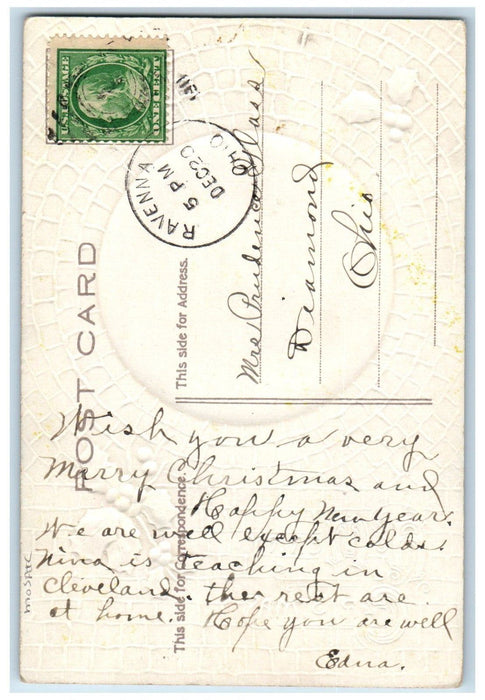 U.S. POSTAGE
ONE CENT
RAVENNA
OHIO
DEC 20
5 PM
POST CARD
This side for Address.
Mrs Prudence Kass
Diamond
Ohio
This side for Correspondence.
Wish you a very
Merry Christmas and
Happy New Year.
We are well except colds.
Nina is teaching in
Cleveland. the rest are
at home. Hope you are well
Edna.
MOSAIC